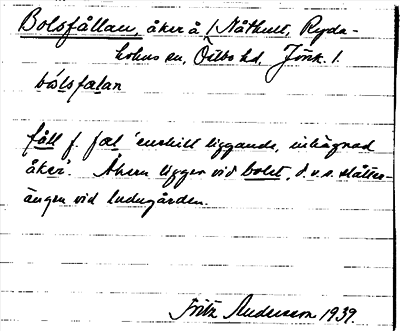 Bolsfållan, åker å /Nåthult, Ryda-
holms sn, Östbo hd, Jönk. l.
bólsfalan
fåll f. fal 'enskilt liggande, inhägnad
åker'. Åkern ligger vid bolet, d.v.s. slåtter-
ängen vid ladugården.
Fritz Andersson 1939.